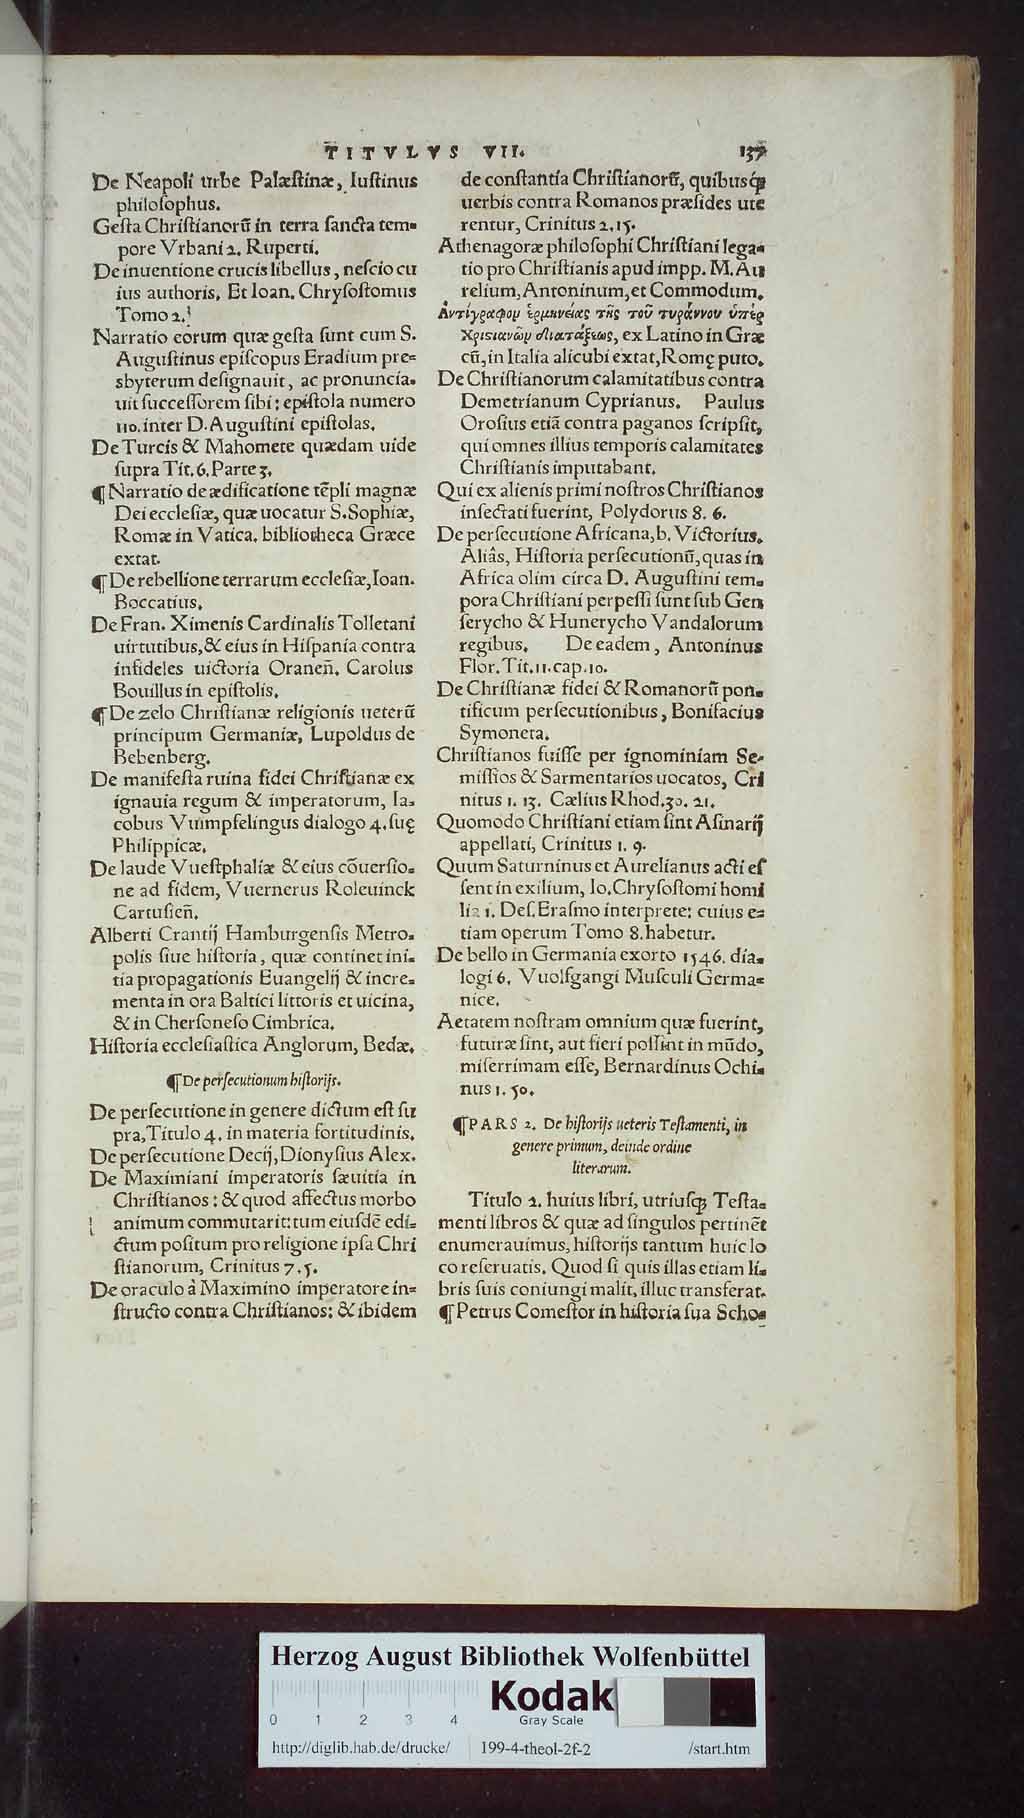 TITVLVS VII. 137
De Neapoli urbe Palæstinæ, Iustinus
philosophus.
Gesta Christianorũ in terra sancta tem-
pore Vrbani 2. Ruperti.
De inuentione crucis libellus, nescio cu
ius authoris. Et Ioan. Chrysostomus
Tomo 2.
Narratio eorum quæ gesta sunt cum S.
Augustinus episcopus Eradium pre-
sbyterum designauit, ac pronuncia-
uit successorem sibi: epistola numero
110. inter D. Augustini epistolas.
De Turcis & Mahomete quædam uide
supra Tit. 6. Parte 3.
¶ Narratio de ædificatione tẽpli magnæ
Dei ecclesiæ, quæ uocatur S. Sophiæ,
Romæ in Vatica. bibliotheca Græce
extat.
¶ De rebellione terrarum ecclesiæ, Ioan.
Boccatius.
De Fran. Ximenis Cardinalis Tolletani
uirtutibus, & eius in Hispania contra
infideles uictoria Oranen̄. Carolus
Bouillus in epistolis.
¶ De zelo Christianæ religionis ueterũ
principum Germaniæ, Lupoldus de
Bebenberg.
De manifesta ruina fidei Christianæ ex
ignauia regum & imperatorum, Ia-
cobus Vuimpfelingus dialogo 4. suę
Philippicæ.
De laude Vuestphaliæ & eius cōuersio-
ne ad fidem, Vuernerus Roleuinck
Cartusien̄.
Alberti Crantij Hamburgensis Metro-
polis siue historia, quæ continet ini-
tia propagationis Euangelij & incre-
menta in ora Baltici littoris et uicina,
& in Chersoneso Cimbrica.
Historia ecclesiastica Anglorum, Bedæ.
¶ De persecutionum historijs.
De persecutione in genere dictum est su
pra, Titulo 4. in materia fortitudinis.
De persecutione Decij, Dionysius Alex.
De Maximiani imperatoris sæuitia in
Christianos: & quod affectus morbo
animum commutarit: tum eiusdẽ edi-
ctum positum pro religione ipsa Chri
stianorum, Crinitus 7. 5.
De oraculo à Maximino imperatore in-
structo contra Christianos: & ibidem
de constantia Christianorũ, quibusq́
uerbis contra Romanos præsides ute
rentur, Crinitus 2. 15.
Athenagoræ philosophi Christiani lega-
tio pro Christianis apud impp. M. Au
relium, Antoninum, et Commodum.
Αντίγραφον ἑρμηνείας τῆς τοῦ τυράννου ὑπὲρ
Χριστιανῶν διατάξεως, ex Latino in Græ
cũ, in Italia alicubi extat, Romę puto.
De Christianorum calamitatibus contra
Demetrianum Cyprianus. Paulus
Orosius etiã contra paganos scripsit,
qui omnes illius temporis calamitates
Christianis imputabant.
Qui ex alienis primi nostros Christianos
insectati fuerint, Polydorus 8. 6.
De persecutione Africana, b. Victorius.
Aliâs, Historia persecutionũ, quas in
Africa olim circa D. Augustini tem-
pora Christiani perpessi sunt sub Gen
serycho & Hunerycho Vandalorum
regibus. De eadem, Antoninus
Flor. Tit. 11. cap. 10.
De Christianæ fidei & Romanorũ pon-
tificum persecutionibus, Bonifacius
Symoneta.
Christianos fuisse per ignominiam Se-
missios & Sarmentarios uocatos, Cri
nitus 1. 13. Cælius Rhod. 30. 21.
Quomodo Christiani etiam sint Asinarij
appellati, Crinitus 1. 9.
Quum Saturninus et Aurelianus acti es
sent in exilium, Io. Chrysostomi homi
lia 1. Des. Erasmo interprete: cuius e-
tiam operum Tomo 8. habetur.
De bello in Germania exorto 1546. dia-
logi 6. Vuolfgangi Musculi Germa-
nice.
Aetatem nostram omnium quæ fuerint,
futuræ sint, aut fieri possint in mũdo,
miserrimam esse, Bernardinus Ochi-
nus 1. 50.
¶ PARS 2. De historijs ueteris Testamenti, in
genere primum, deinde ordine
literarum.
Titulo 2. huius libri, utriusq́ Testa-
menti libros & quæ ad singulos pertinẽt
enumerauimus, historijs tantum huic lo
co reseruatis. Quod si quis illas etiam li-
bris suis coniungi malit, illuc transferat.
¶ Petrus Comestor in historia sua Scho-
Herzog August Bibliothek Wolfenbüttel
Kodak
Gray Scale
0 1 2 3 4
http://diglib.hab.de/drucke/ 199-4-theol-2f-2 /start.htm